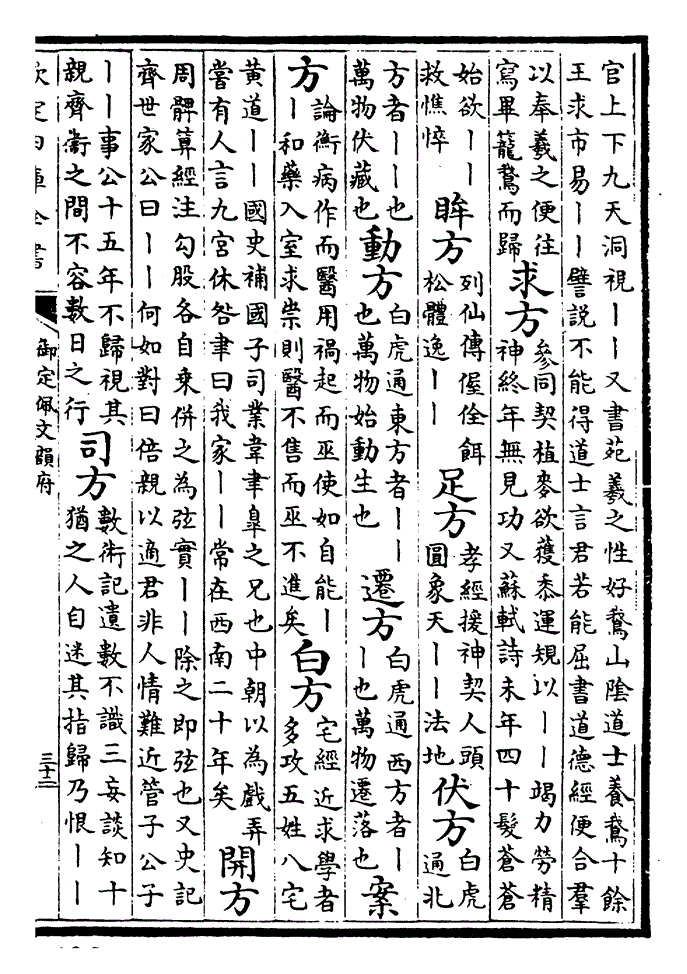 官上下九天洞視丨丨又書苑羲之性好鵞山陰道士養鵞十餘
王求市易丨丨譬說不能得道士言君若能屈書道德經便合羣
以奉羲之便往
寫畢籠鵞而歸
求方
參同契植麥欲獲黍運規以丨丨竭力勞精
神終年無見功又蘇軾詩未年四十髮蒼蒼
始欲丨丨
救憔悴
眸方
列仙傳偓佺餌
松體逸丨丨
足方
孝經援神契人頭
圓象天丨丨法地
伏方
白虎
通北
方者丨丨也
萬物伏藏也
動方
白虎通東方者丨丨
也萬物始動生也
遷方
白虎通西方者丨
丨也萬物遷落也
案
方
論衡病作而醫用禍起而巫使如自能丨
丨和藥入室求祟則醫不售而巫不進矣
白方
宅經近求學者
多攻五姓八宅
黃道丨丨國史補國子司業韋聿臯之兄也中朝以為戲弄
嘗有人言九宮休咎聿曰我家丨丨常在西南二十年矣
開方
周髀算經注勾股各自乘併之為弦實丨丨除之即弦也又史記
齊世家公曰丨丨何如對曰倍親以適君非人情難近管子公子
丨丨事公十五年不歸視其
親齊衞之間不容數日之行
司方
數術記遺數不識三妄談知十
猶之人自迷其指歸乃恨丨丨
欽定四庫全書
御定佩文韻府
三十二